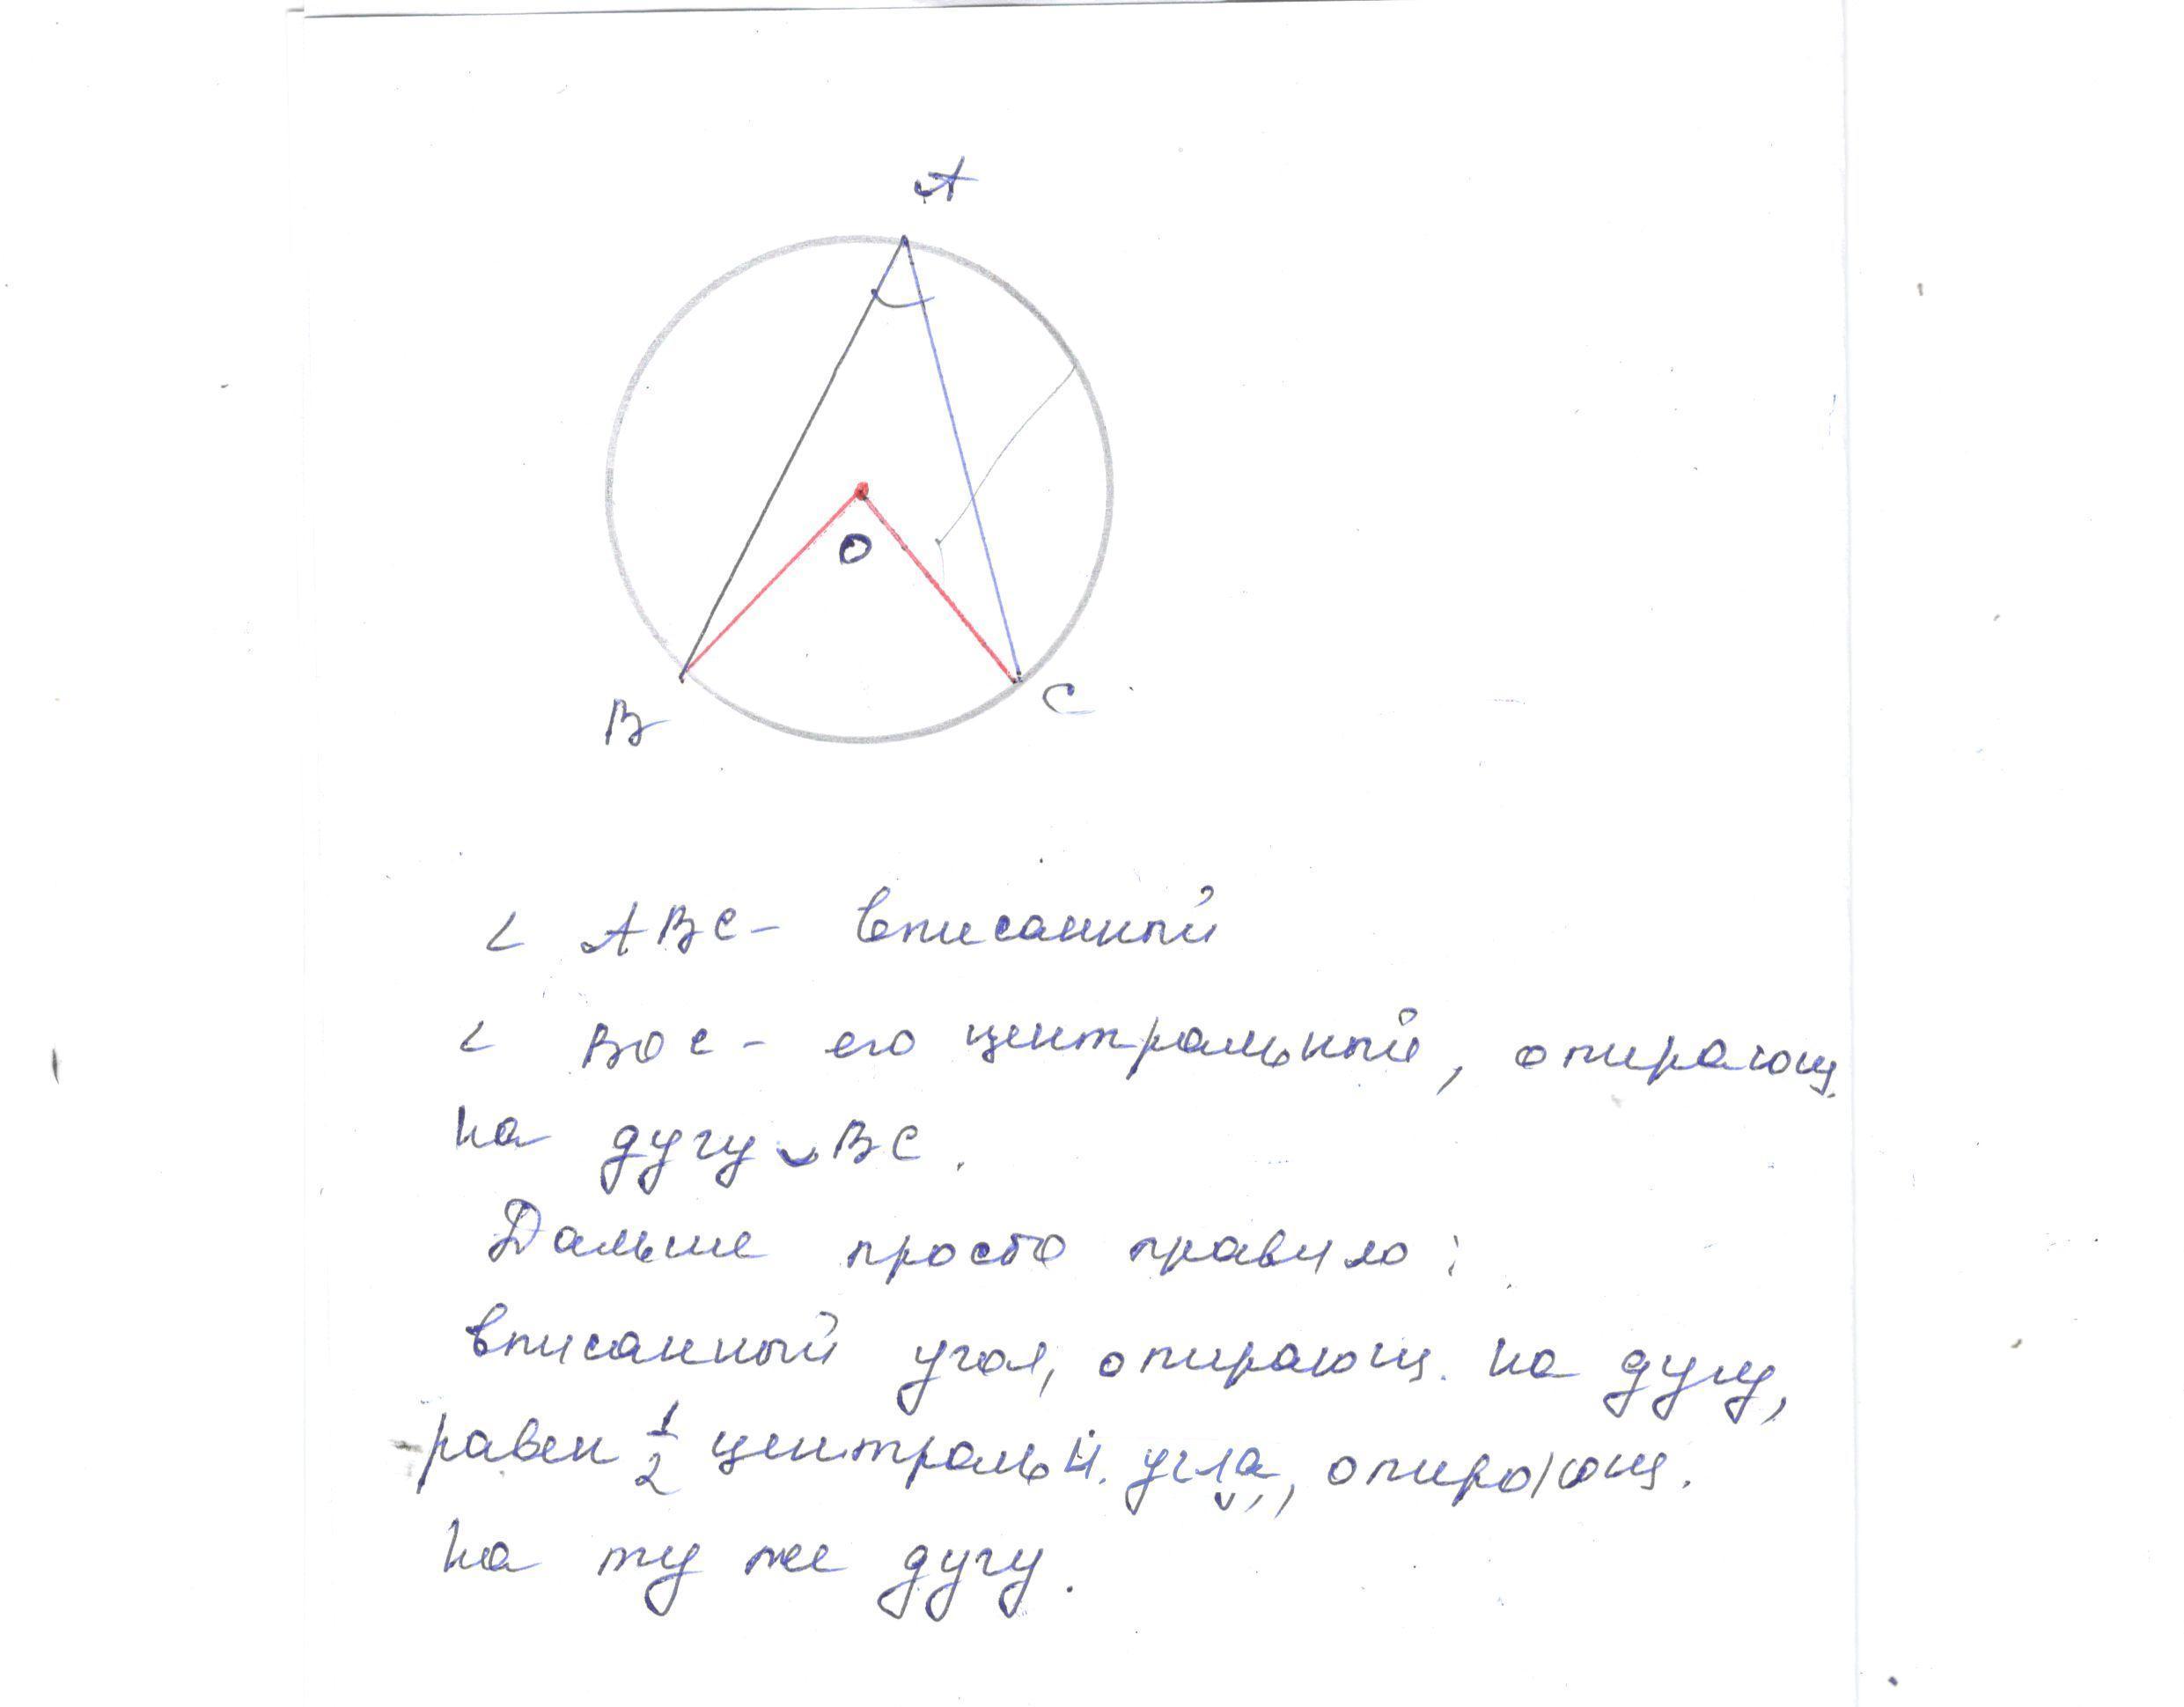 A
O
B
C
∠ ABC - вписанный
∠ BOC - его центральный, опирающ.
на дугу ◡BC.
Дальше просто правило:
вписанный угол, опирающ. на дугу,
равен 1/2 центральн. угла, опирающ.
на ту же дугу.